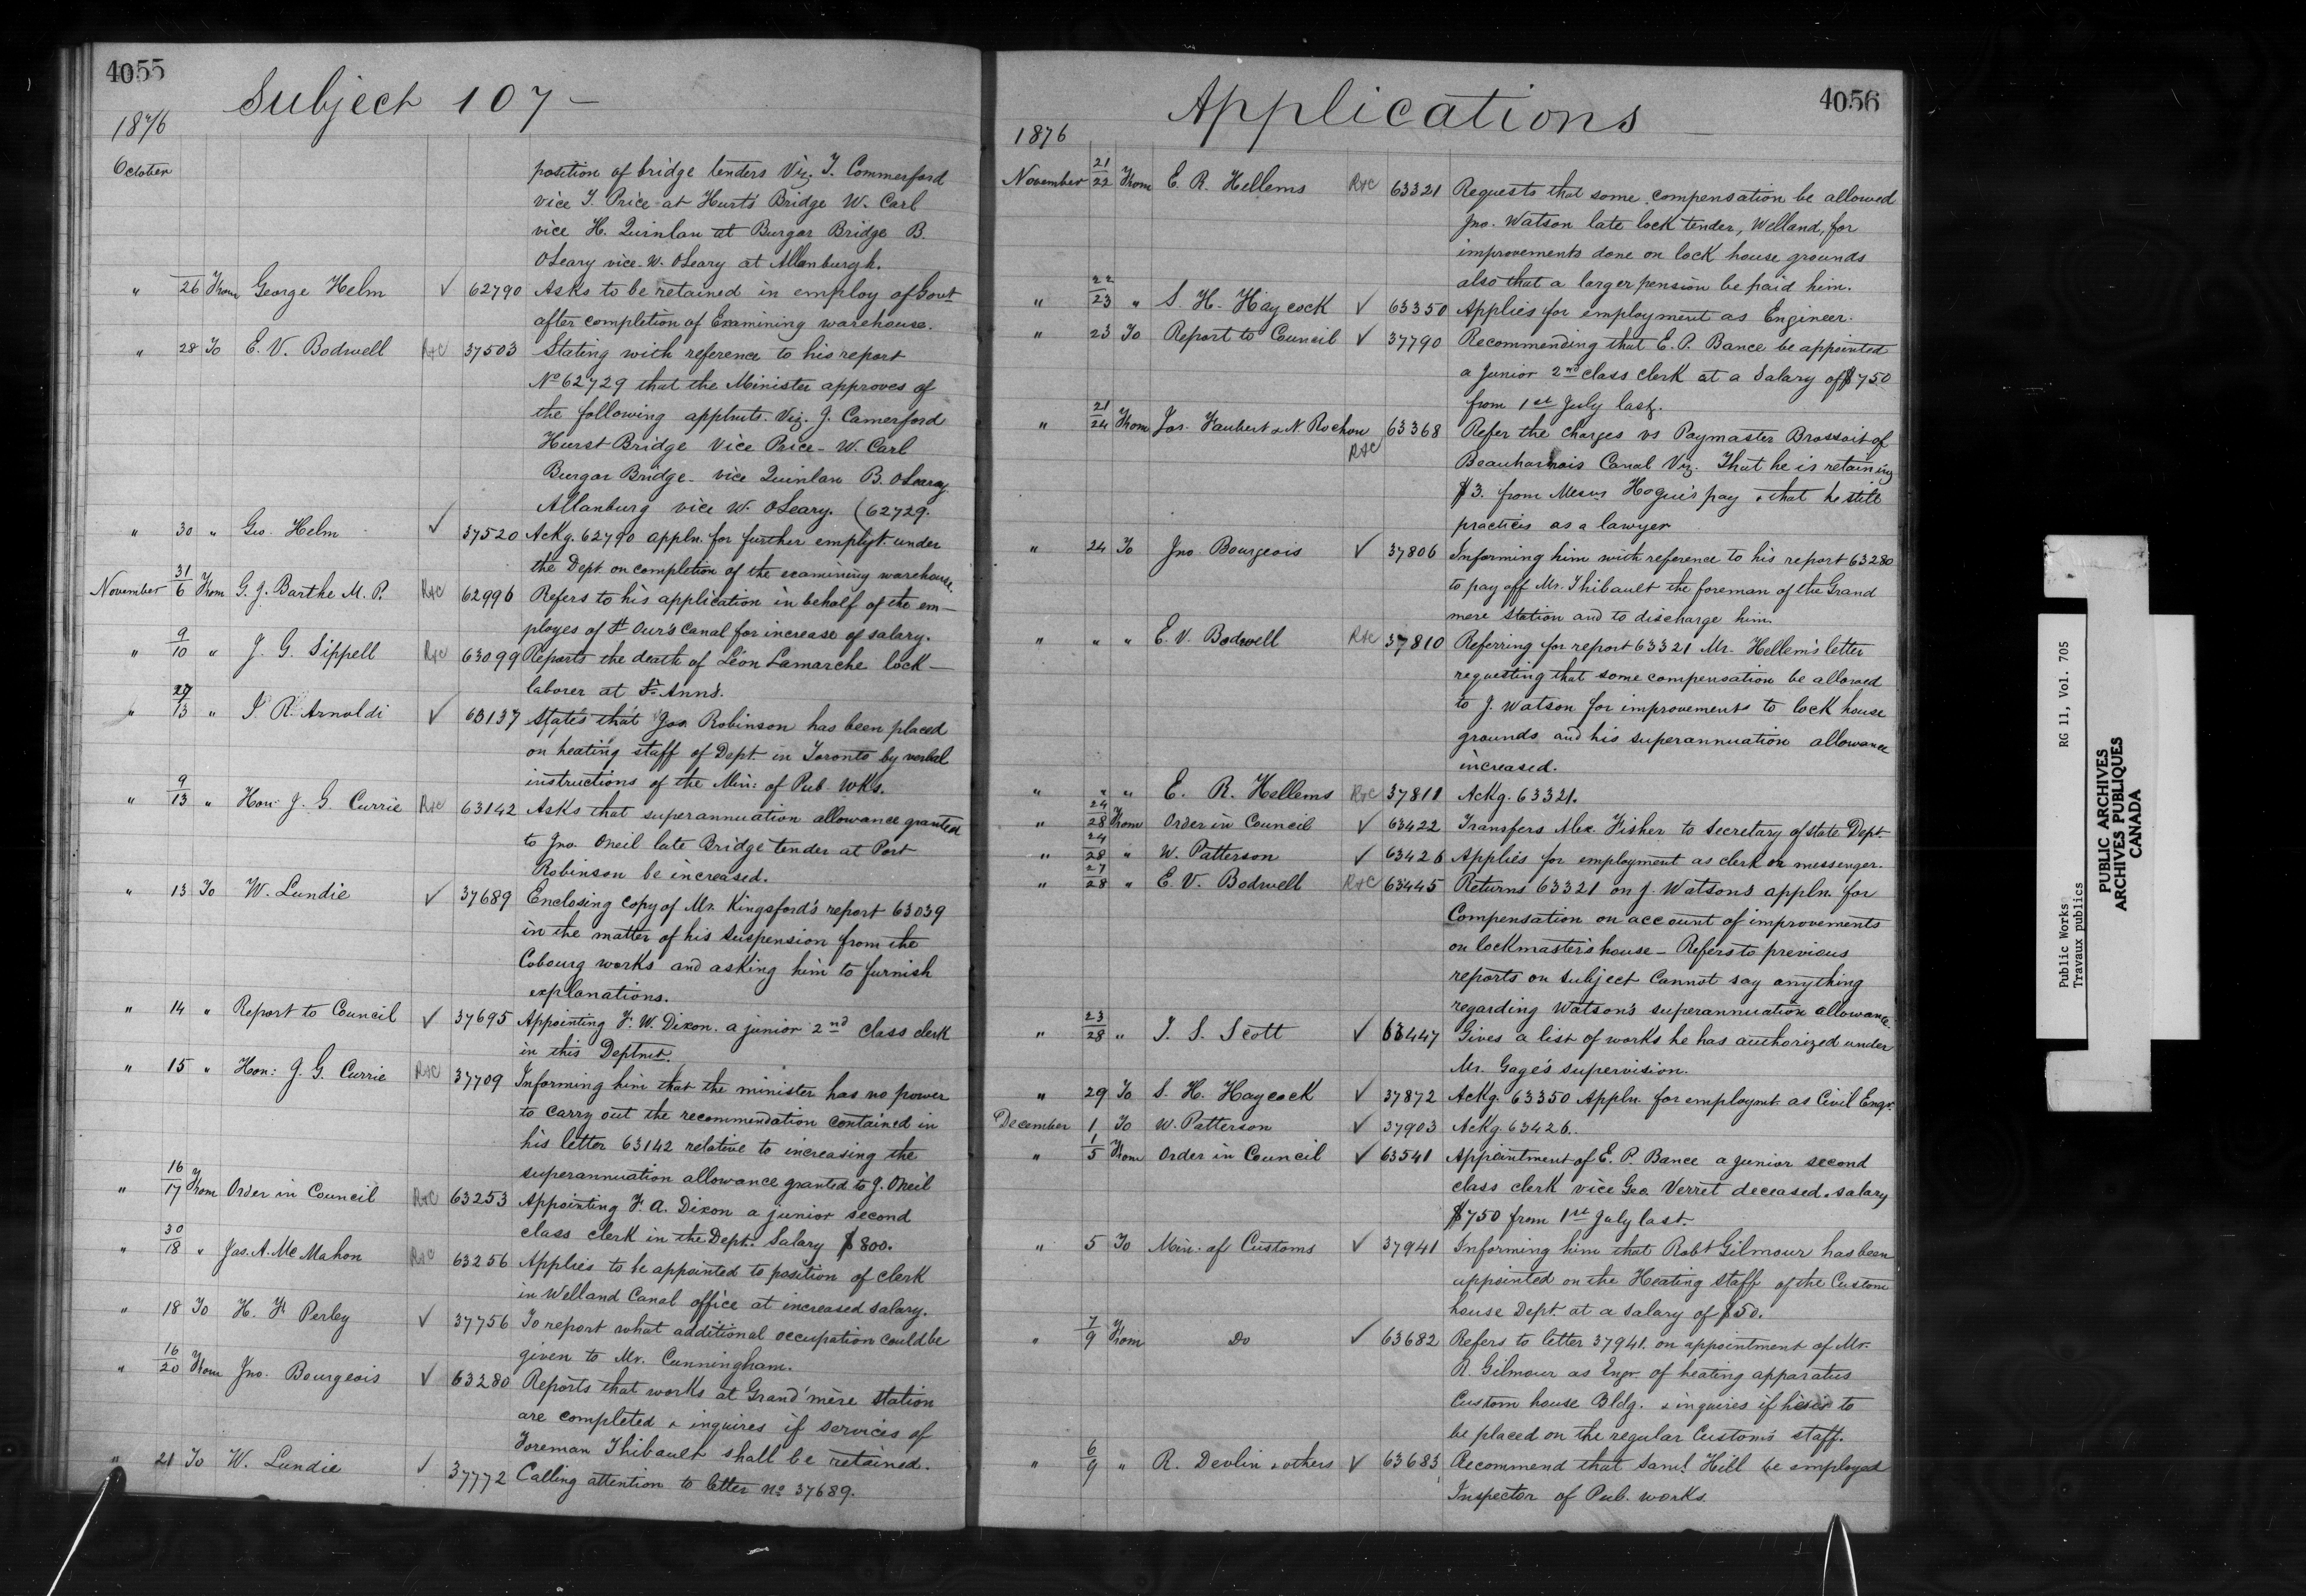 4055
Subject 107 —
1876
October
position of bridge tenders Viz. T. Commerford
vice T. Price at Hurst's Bridge W. Carl
vice H. Quinlan at Burgar Bridge B.
OLeary vice W. OLeary at Allanburgh.
" 26 From George Helm ✓ 62790 Asks to be retained in employ of Govt
after completion of Examining warehouse.
" 28 To E. V. Bodwell R&C 37503 Stating with reference to his report
No 62729 that the Minister approves of
the following apptmts. Viz. J. Camerford
Hurst Bridge vice Price - W. Carl
Burgar Bridge - vice Quinlan B. OLeary
Allanburg vice W. OLeary. (62729.
" 30 " Geo. Helm ✓ 37520 Ackg. 62790 appln. for further emplyt. under
the Dept. on completion of the examining warehouse.
November 31/6 From G. J. Barthe M. P. R&C 62996 Refers to his application in behalf of the em-
ployes of St Our's Canal for increase of salary.
" 9/10 " J. G. Sippell R&C 63099 Reports the death of Léon Lamarche lock-
laborer at St. Ann's.
" 27/13 " J. R. Arnoldi ✓ 63137 States that Jos. Robinson has been placed
on heating staff of Dept. in Toronto by verbal
instructions of the Min: of Pub. Wks.
" 9/13 " Hon: J. G. Currie R&C 63142 Asks that superannuation allowance granted
to Jno. Oneil late Bridge tender at Port
Robinson be increased.
" 13 To W. Lundie ✓ 37689 Enclosing copy of Mr. Kingsford's report 63039
in the matter of his suspension from the
Cobourg works and asking him to furnish
explanations.
" 14 " Report to Council ✓ 37695 Appointing F. W. Dixon. a junior 2nd class clerk
in this Deptmt.
" 15 " Hon: J. G. Currie R&C 37709 Informing him that the minister has no power
to carry out the recommendation contained in
his letter 63142 relative to increasing the
superannuation allowance granted to J. Oneil
" 16/17 From Order in Council R&C 63253 Appointing F. A. Dixon a junior second
class clerk in the Dept. Salary $800.
" 30/18 " Jas. A. McMahon R&C 63256 Applies to be appointed to position of clerk
in Welland Canal office at increased salary.
" 18 To H. F. Perley ✓ 37756 To report what additional occupation could be
given to Mr. Cunningham.
" 16/20 From Jno. Bourgeois ✓ 63280 Reports that works at Grand'mère station
are completed & inquires if services of
Foreman Thibault shall be retained.
" 21 To W. Lundie ✓ 37772 Calling attention to letter No 37689.
4056
Applications —
1876
November 21/22 From E. R. Hellems R&C 63321 Requests that some compensation be allowed
Jno. Watson late lock tender, Welland, for
improvements done on lock house grounds
also that a larger pension be paid him.
" 22/23 " S. H. Haycock ✓ 63350 Applies for employment as Engineer.
" 23 To Report to Council ✓ 37790 Recommending that E. P. Bance be appointed
a junior 2nd class clerk at a Salary of $750
from 1st July last.
" 21/24 From Jos. Faubert & N. Rochon R&C 63368 Refer the charges vs Paymaster Brossoit of
Beauharnois Canal Viz. That he is retaining
$3. from Messrs Hogue's pay & that he still
practices as a lawyer
" 24 To Jno Bourgeois ✓ 37806 Informing him with reference to his report 63280
to pay off Mr. Thibault the foreman of the Grand
mere Station and to discharge him.
" " " E. V. Bodwell R&C 37810 Referring for report 63321 Mr. Hellem's letter
requesting that some compensation be allowed
to J. Watson for improvements to lock house
grounds and his superannuation allowance
increased.
" " " E. R. Hellems R&C 37811 Ackg. 63321.
" 24/28 From Order in Council ✓ 63422 Transfers Alex Fisher to Secretary of State Dept.
" 24/28 " W. Patterson ✓ 63426 Applies for employment as clerk or messenger.
" 27/28 " E. V. Bodwell R&C 63445 Returns 63321 on J. Watson's appln. for
Compensation on account of improvements
on lockmaster's house - Refers to previous
reports on subject Cannot say anything
regarding Watson's superannuation allowance.
" 23/28 " T. S. Scott ✓ 63447 Gives a list of works he has authorized under
Mr. Gage's supervision.
" 29 To S. H. Haycock ✓ 37872 Ackg. 63350 Appln. for employmt. as Civil Engr.
December 1 To W. Patterson ✓ 37903 Ackg. 63426.
" 1/5 From Order in Council ✓ 63541 Appointment of E. P. Bance a junior second
class clerk vice Geo. Verret deceased. salary
$750 from 1st July last.
" 5 To Min. of Customs ✓ 37941 Informing him that Robt Gilmour has been
appointed on the Heating staff of the Custom
house Dept. at a Salary of $50.
" 7/9 From Do ✓ 63682 Refers to letter 37941. on appointment of Mr.
R. Gilmour as Engr. of heating apparatus
Custom house Bldg. & inquires if he is to
be placed on the regular Customs staff.
" 6/9 " R. Devlin & others ✓ 63683 Recommend that Saml. Hill be employed
Inspector of Pub. works.
Public Works RG 11, Vol. 705
Travaux publics
PUBLIC ARCHIVES
ARCHIVES PUBLIQUES
CANADA